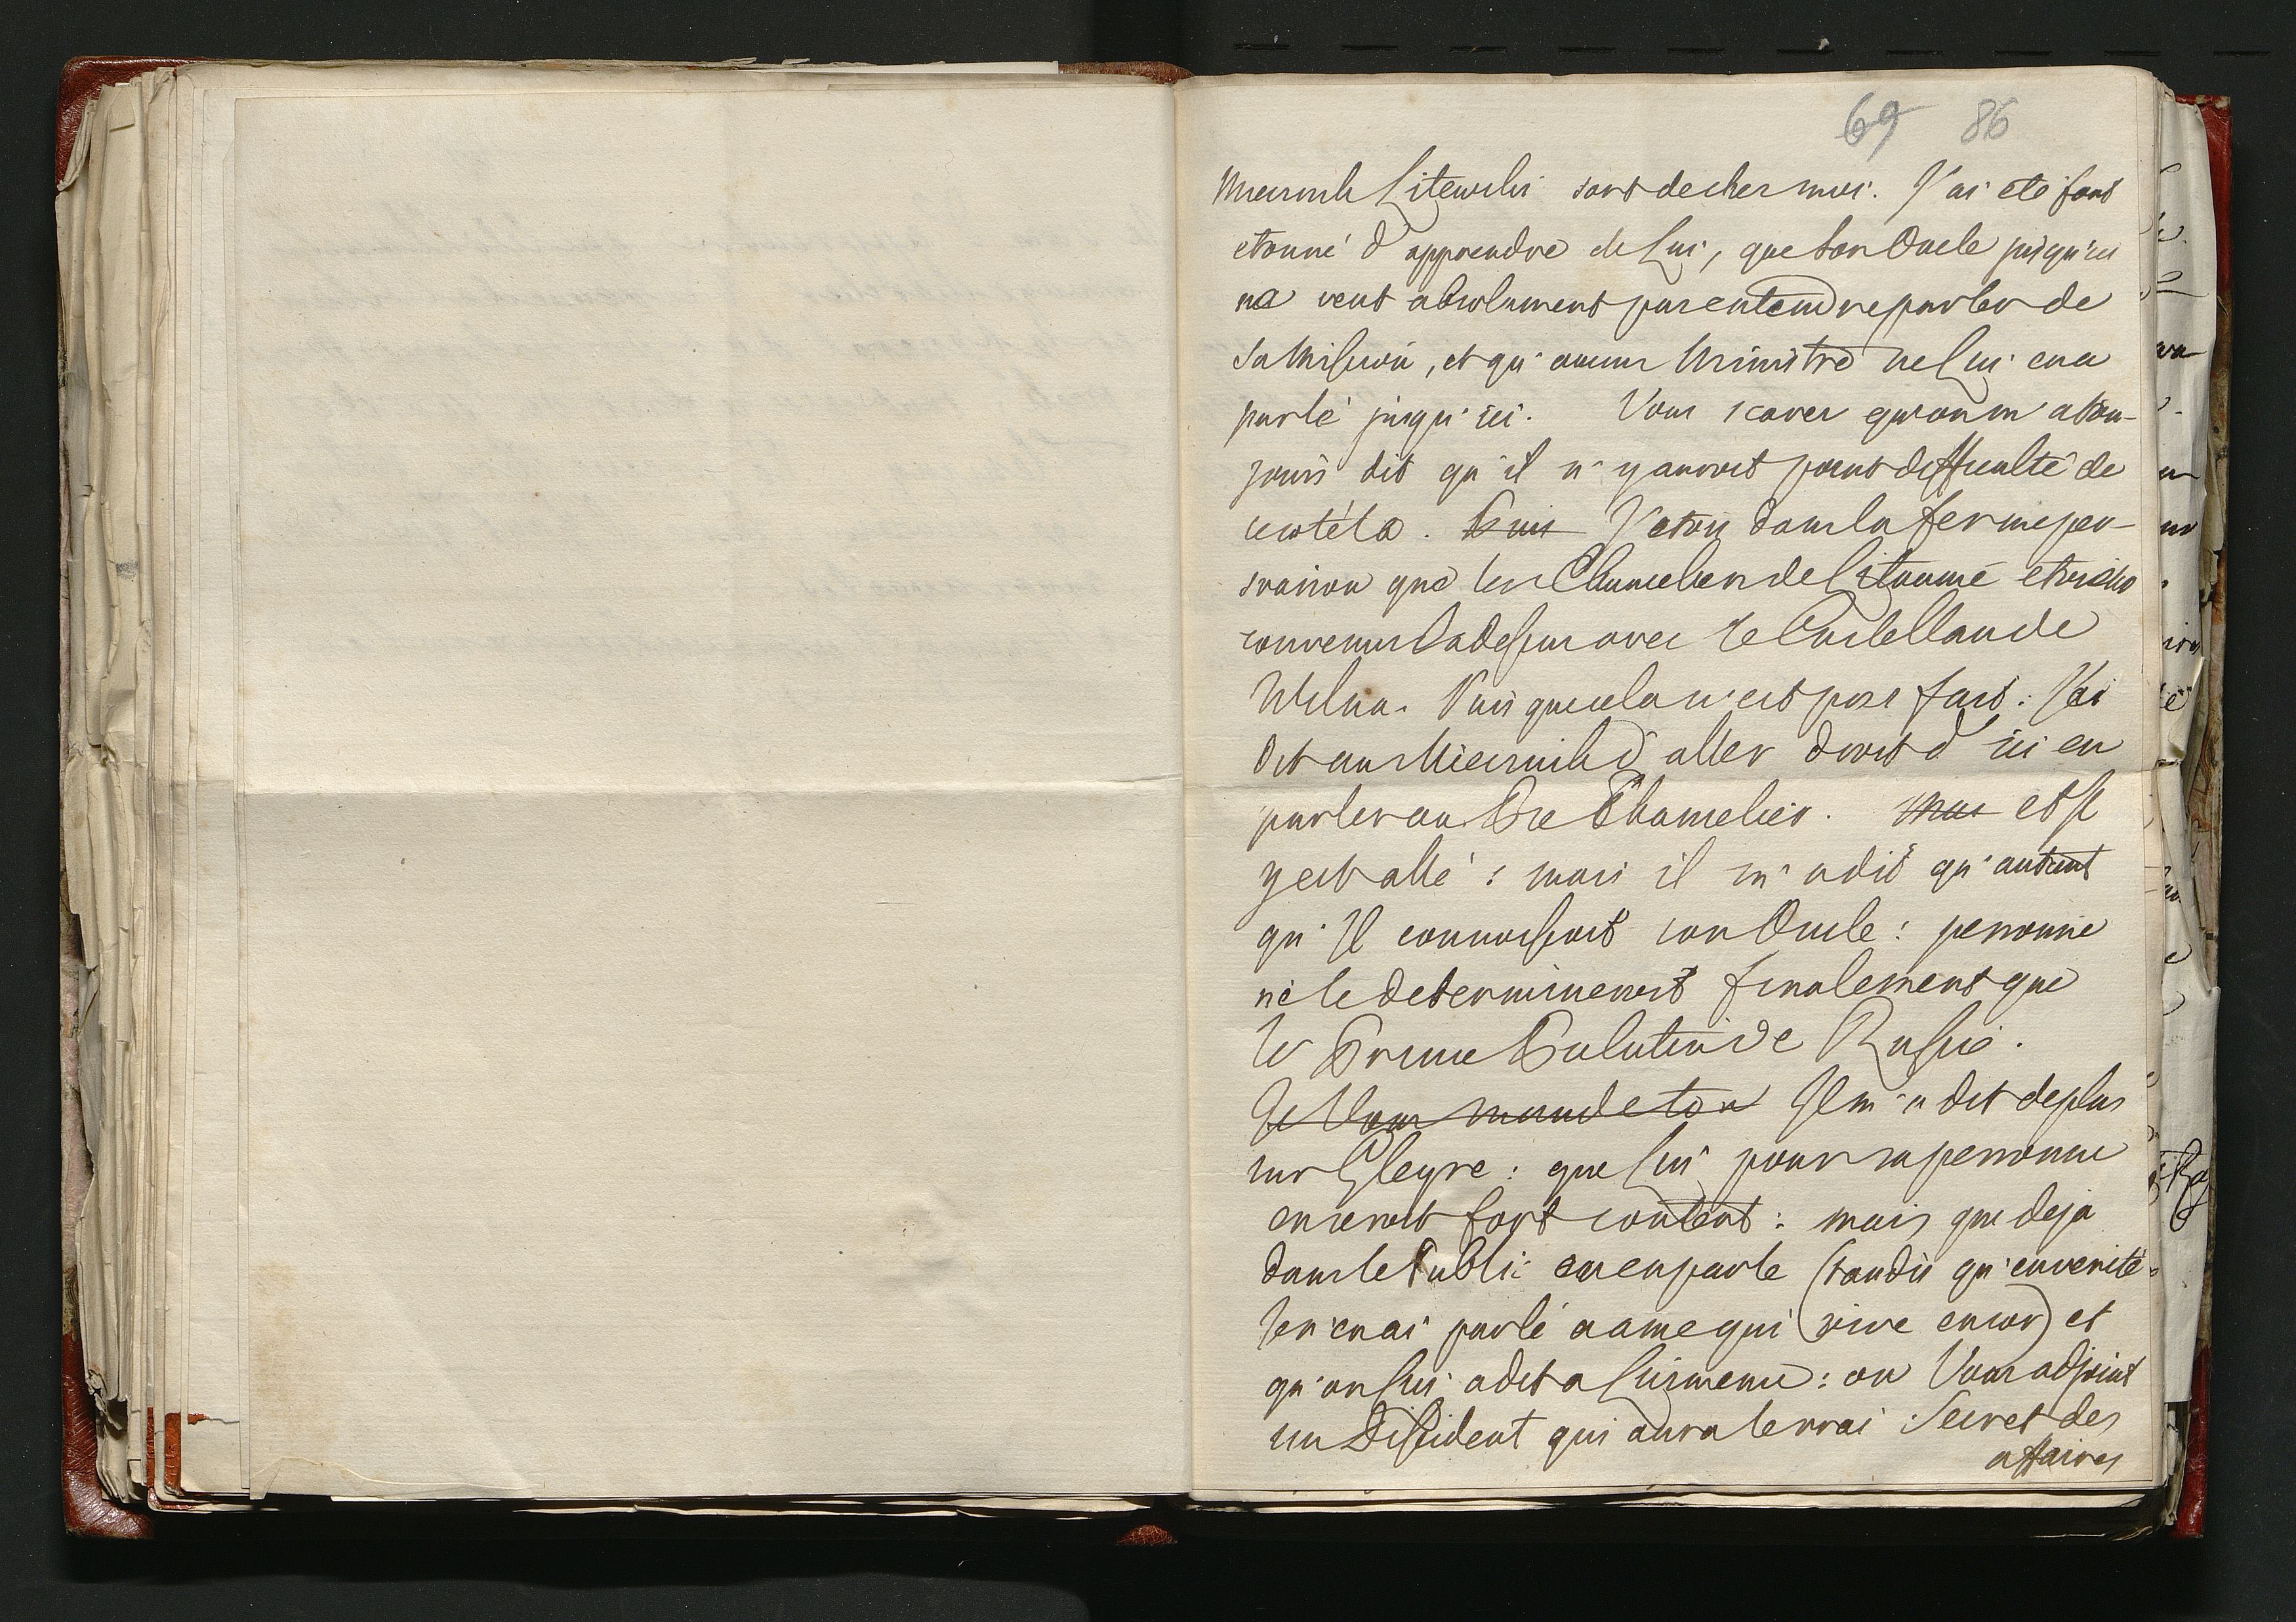 69 86
Miecznik Litewski sort de chez moi. J'ai eté fort
etonné d'apprendre de Lui, que son Oncle jusqu'ici
ne veut absolument pas entendre parler de
sa Mission, et qu'aucun Ministre ne Lui en a
parlé jusqu'ici. Vous scavez qu'on m'a tou-
jours dit qu'il n'y auroit point difficulté de
ce coté la. Puis J'etois dans la ferme per-
svasion que les Chancelier de Lituanie etoient
convenus la dessus avec le Castellan de
Wilna. Puisque cela n'est pas fait: J'ai
dit au Miecznik d'aller droit d'ici en
parler au Pce Chancelier. mais et Il
y est allé: mais il m'a dit qu'autant
qu'Il connoissoit son Oncle: personne
ne le determineroit finalement que
le Prince Palatin de Russie.
Je Vous mande to Il m'a dit de plus
sur Glayre: que Lui pour sa personne
en seroit fort content: mais que deja
dans le Public on en parle (tandis qu'en verité
Je n'en ai parlé a ame qui vive encor) et
qu'on Lui a dit a Lui meme: on Vous adjoint
un Dissident qui aura le vrai Secret des
affaires